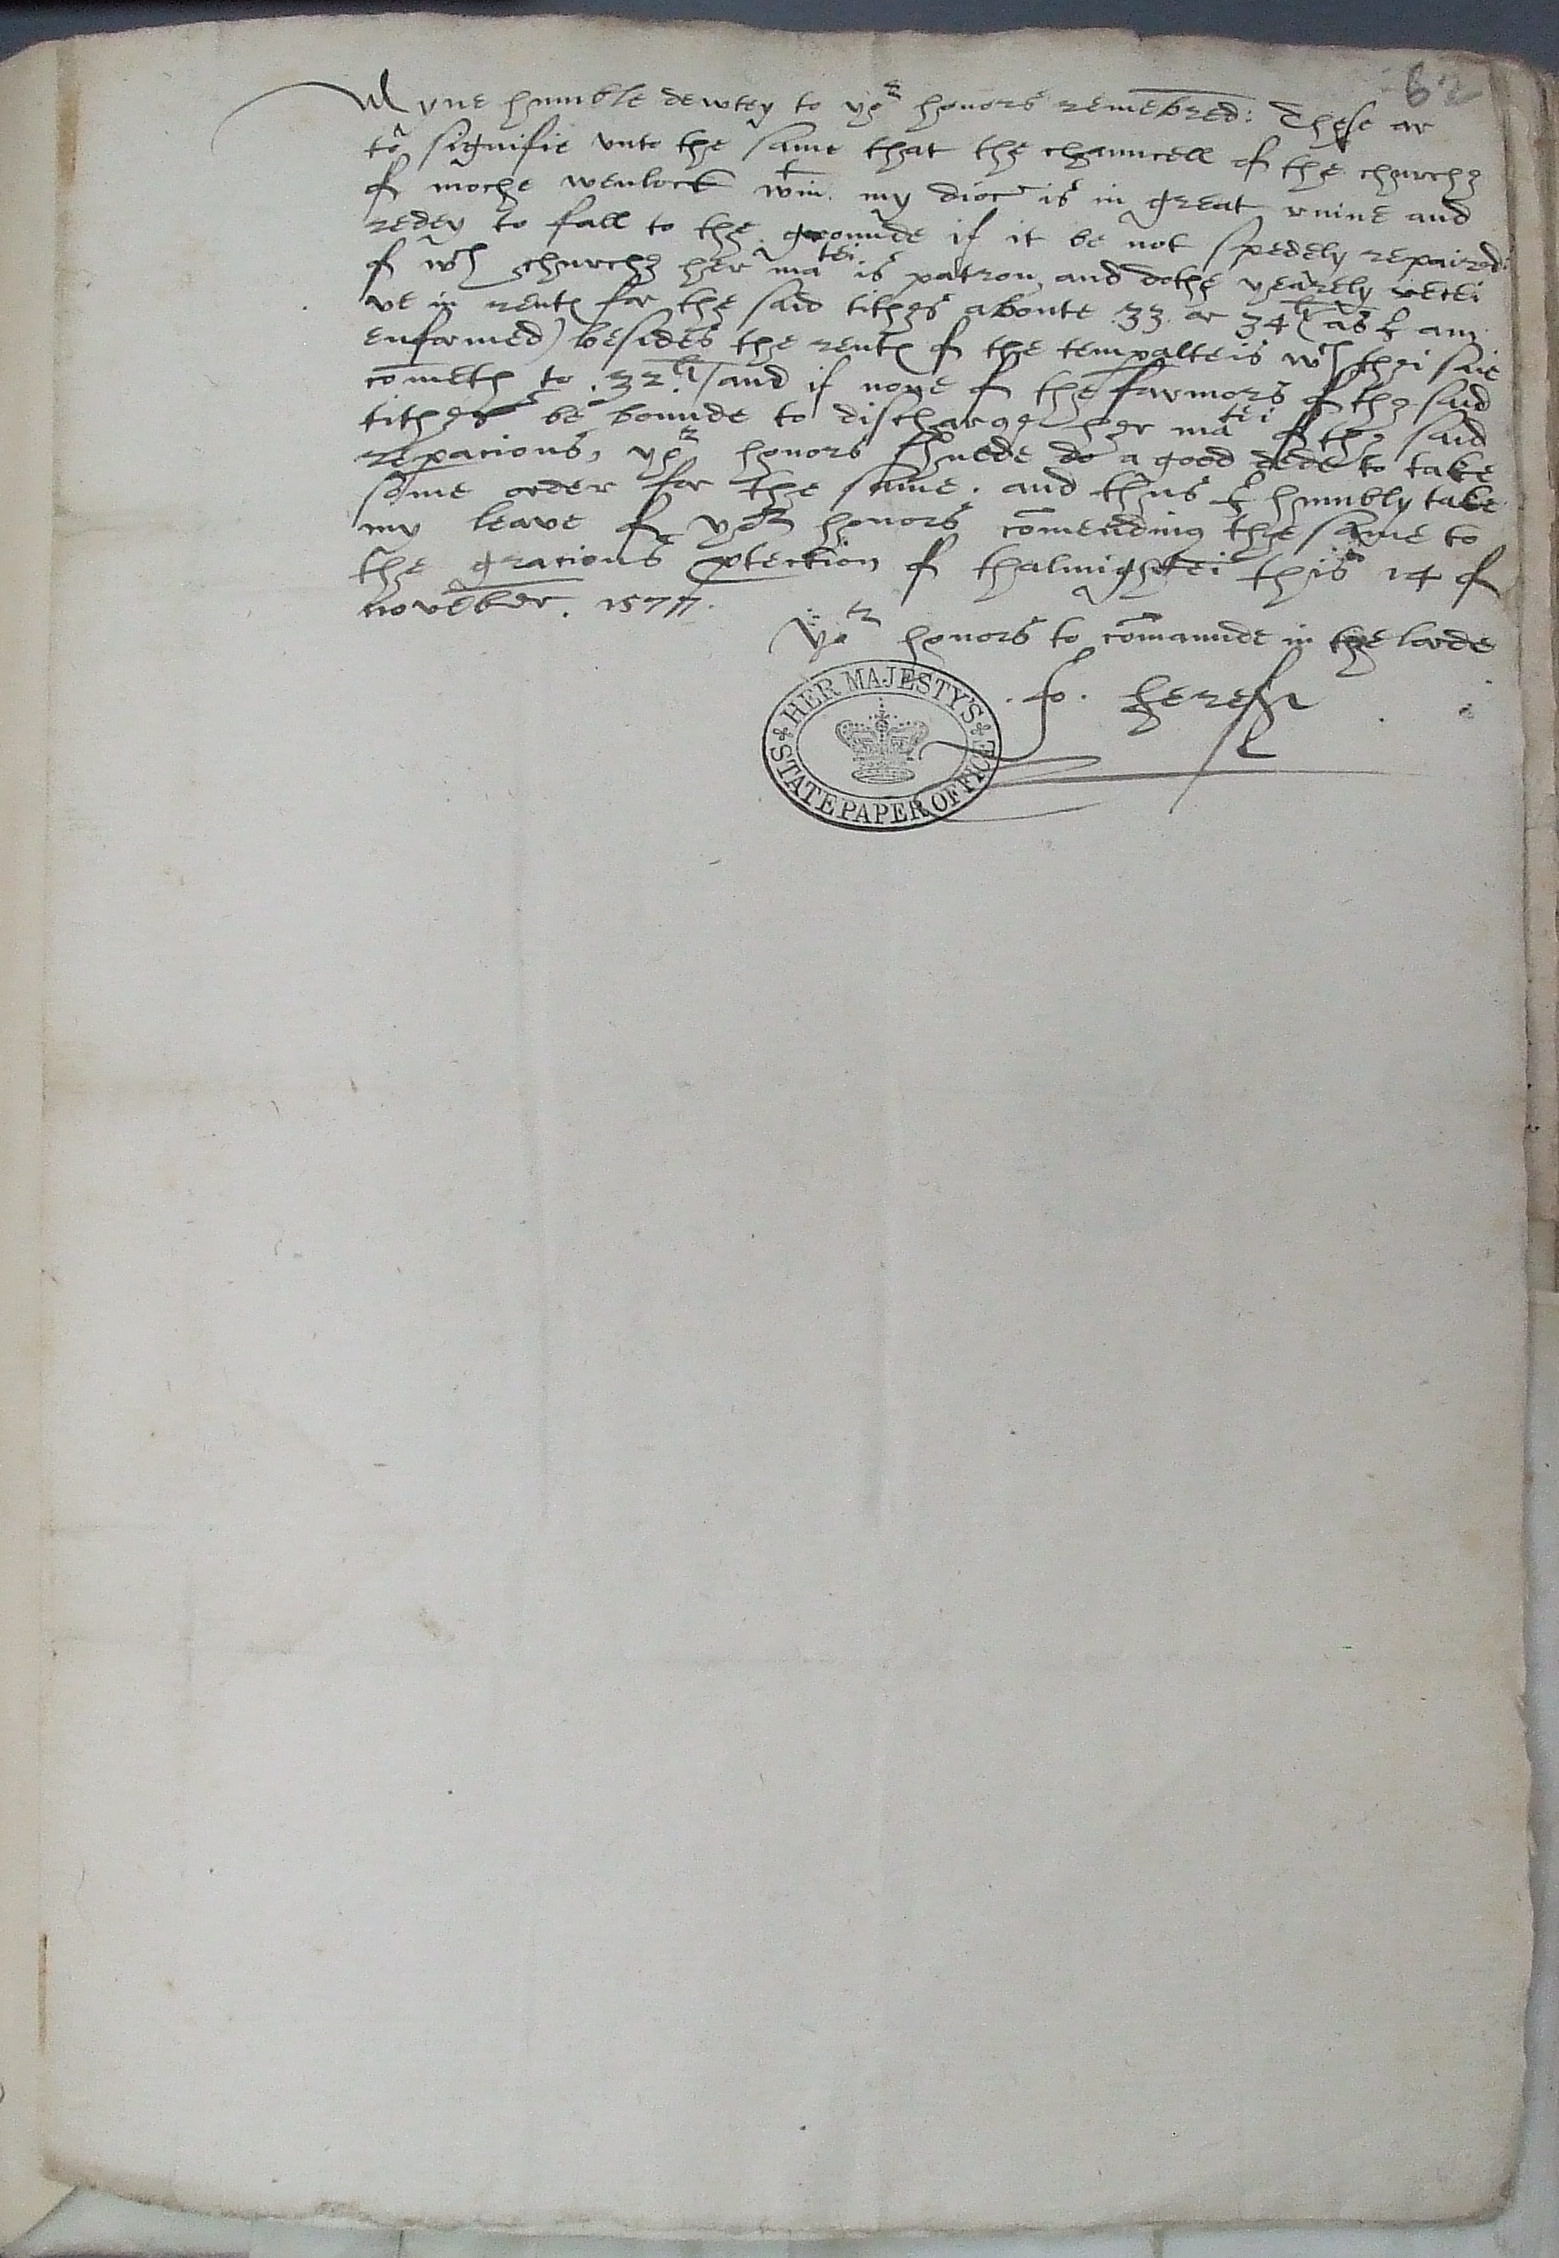 62
Myne humble dewtey to yor honors remebred: These ar
to signifie unto the same that the chauncell of the churche
of moche wenlock wtin my dioc is in great ruine and
redey to fall to the grounde if it be not spedely repaired:
of wch churche her matei is patron, and dothe yearely recei
ve in rent for the said tithes aboute 33 or 34li (as I am
enformed) besides the rent of the temporalteis wch thei saie
cometh to .32li./ and if none of the farmors of the said
tithes be bounde to discharge her matei of the said
repacions, yor honors shuede do a good dede to take
some order for the same. and thus I humbly take
my leave of yor honors comending the same to
the gracious ptection of thalmightei this 14 of
november. 1577.
Yor honors to comaunde in the lorde
.Jo. heref
HER MAJESTY'S
STATE PAPER OFFICE